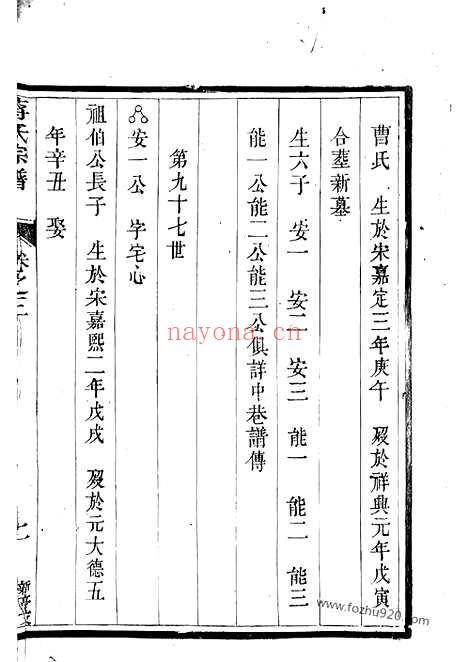 曹氏 生於宋嘉定三年庚午 歿於祥興元年戊寅
合墓新墓
生六子 安一 安二 安三 能一 能二 能三
能一公能二公能三公俱詳中巷譜傳
第九十七世
安一公 字宅心
祖伯公長子 生於宋嘉熙二年戊戌 歿於元大德五
年辛丑 娶
氏宗譜
卷之
七
nayona.cn
www.fozhu920.com